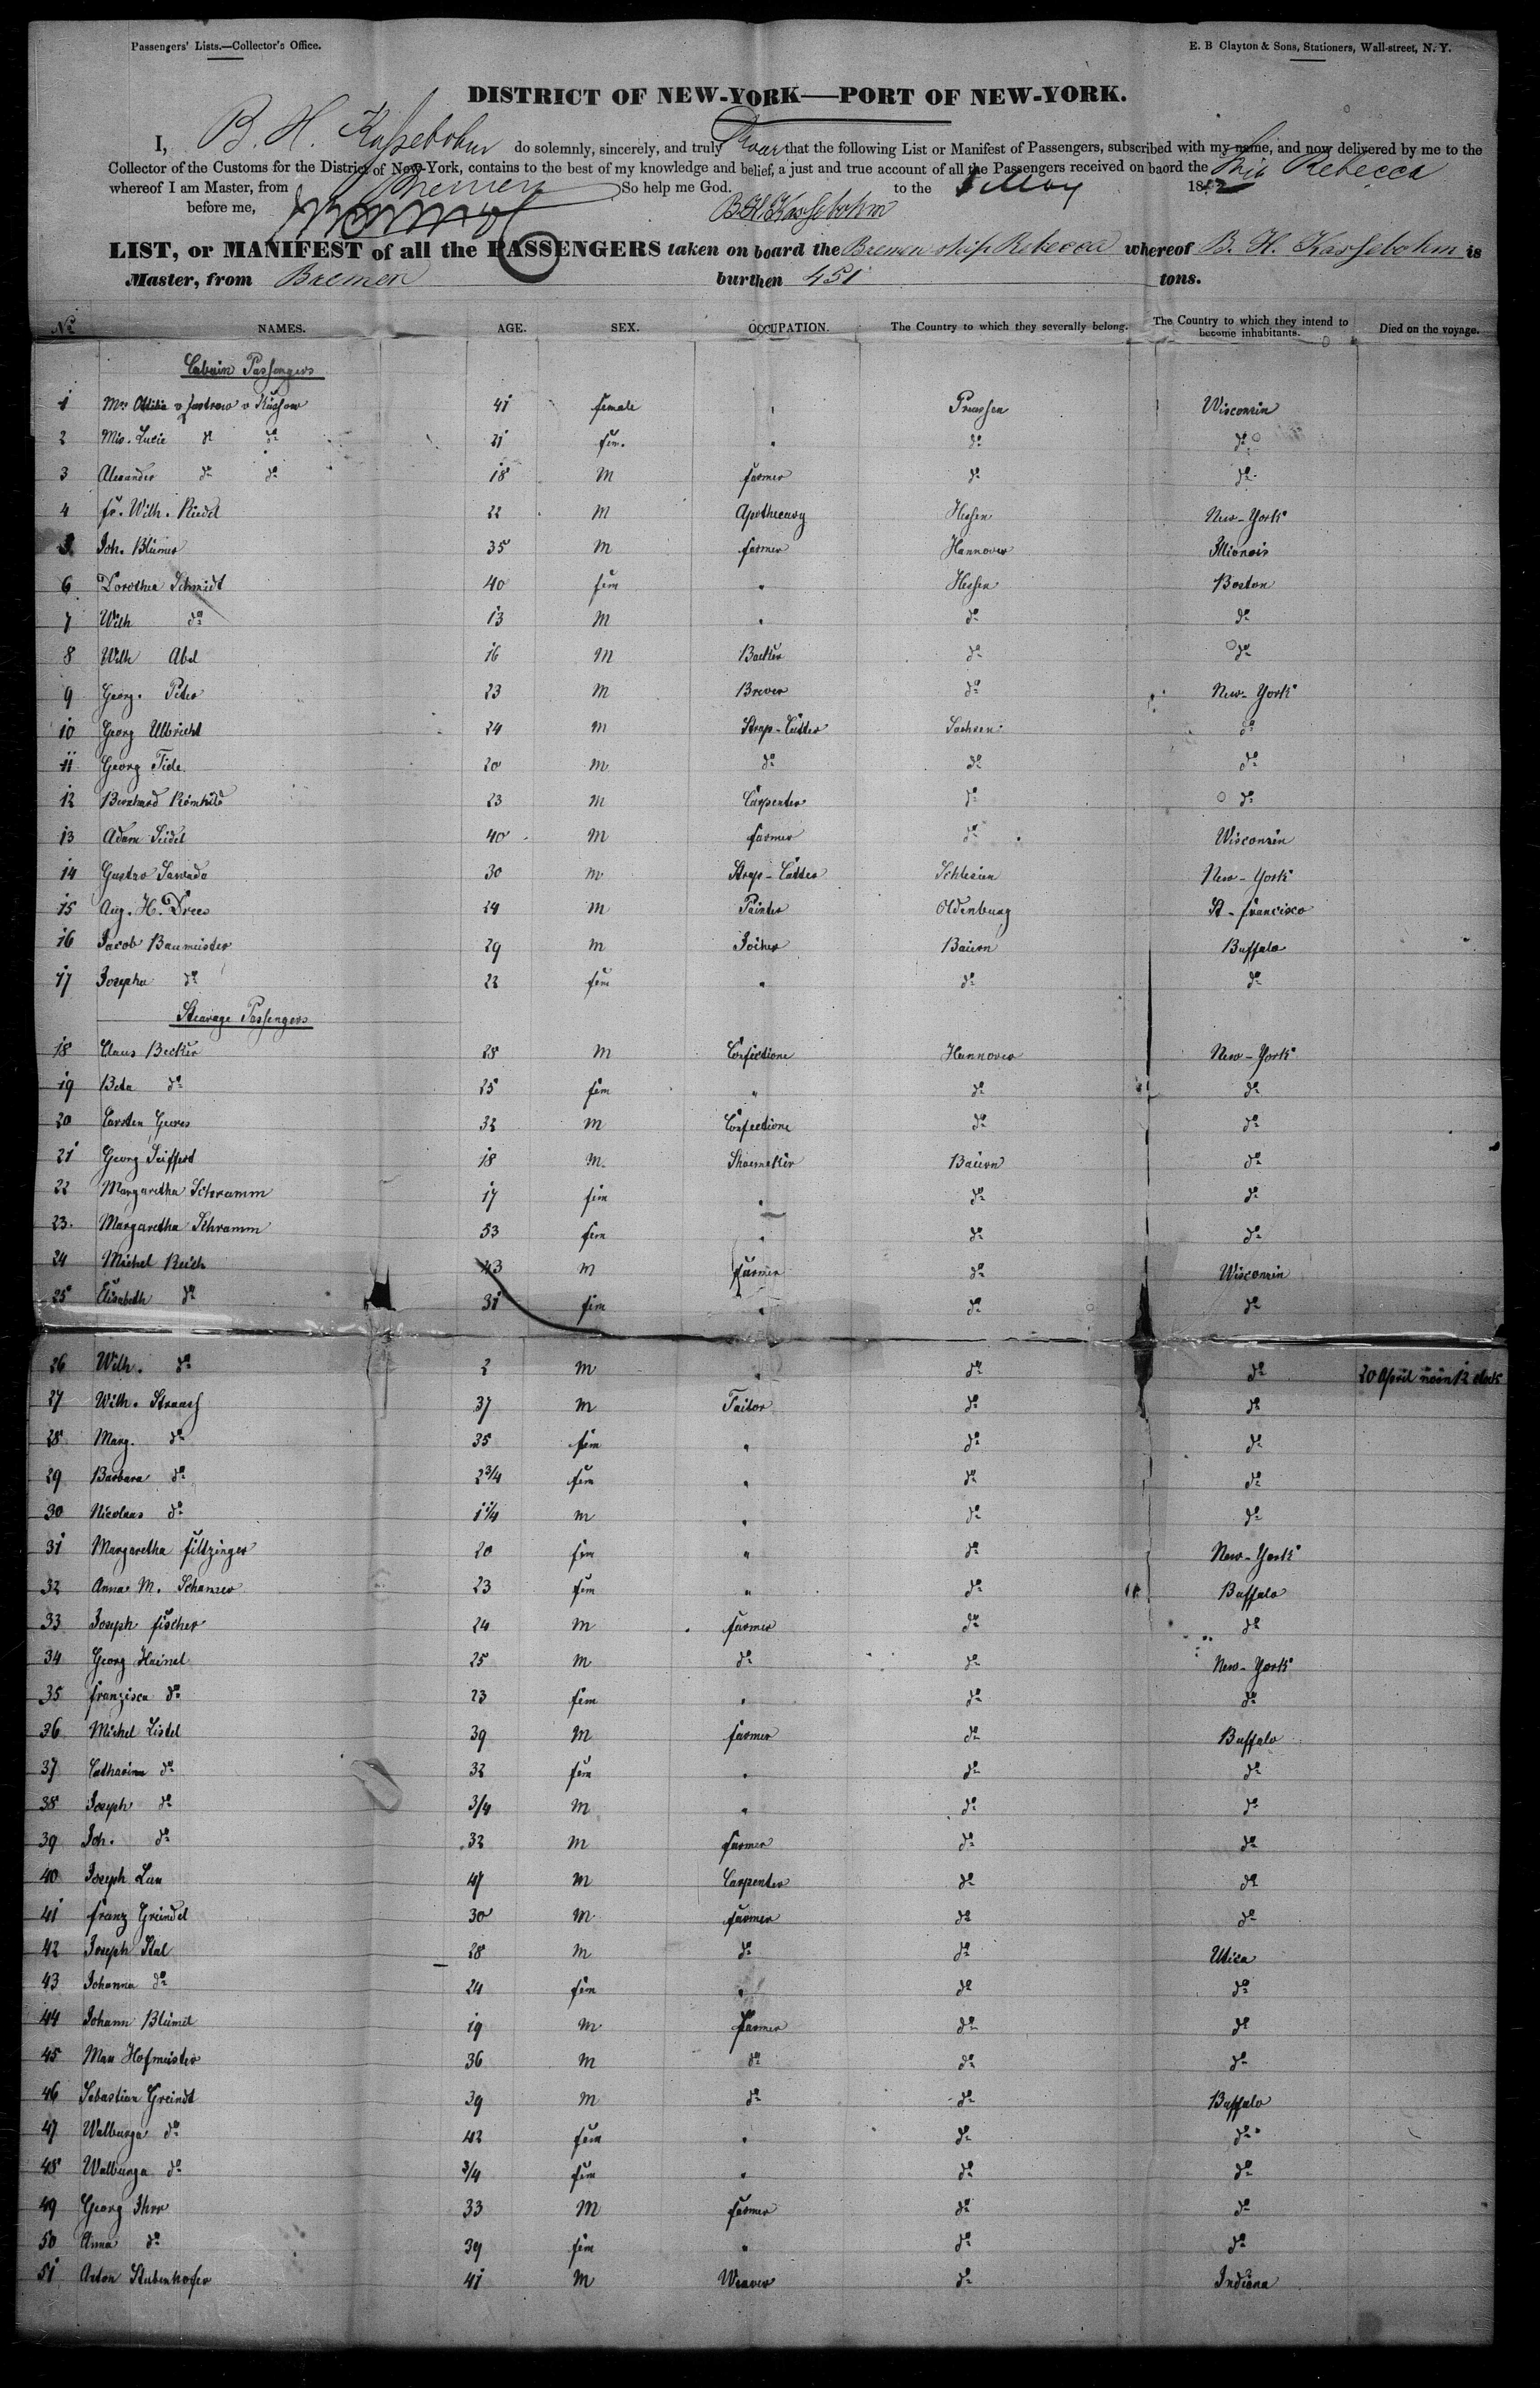 Passengers' Lists.—Collector's Office.
E. B Clayton & Sons, Stationers, Wall-street, N. Y.
DISTRICT OF NEW-YORK—PORT OF NEW-YORK.
I, B. H. Kassebohm do solemnly, sincerely, and truly swear that the following List or Manifest of Passengers, subscribed with my name, and now delivered by me to the
Collector of the Customs for the District of New-York, contains to the best of my knowledge and belief, a just and true account of all the Passengers received on baord the Ship Rebecca
whereof I am Master, from Bremen So help me God. to the 3 May 1852
before me, B H Kassebohm
LIST, or MANIFEST of all the PASSENGERS taken on board the Bremen ship Rebecca whereof B. H. Kassebohm is
Master, from Bremen burthen 451 tons.
No NAMES. AGE. SEX. OCCUPATION. The Country to which they severally belong. The Country to which they intend to become inhabitants. Died on the voyage.
Cabain Passengers
1 Mrs Ottilie v Jastrow v Küssow 41 female " Preussen Wisconsin
2 Mis. Lucie do do 21 fem. " do do
3 Alexander do do 18 M farmer do do
4 Fr. Wilh. Riedel 22 M Apothecary Hessen New-York
5 Joh. Blümer 35 M farmer Hannover Illionois
6 Dorothea Schmidt 40 fem " Hessen Boston
7 Wilh do 13 M " do do
8 Wilh Abel 16 M Backer do do
9 Georg. Peter 23 M Brever do New-York
10 Georg Ulbricht 24 m Strap-Cutter Sachsen do
11 Georg Tide 20 m do do do
12 Bernhard Römhild 23 m Carpenter do do
13 Adam Seidel 40 m farmer do Wisconsin
14 Gustav Sawada 30 m Strap-Cutter Schlesien New-York
15 Aug. H. Drees 24 m Painter Oldenburg St-francisco
16 Jacob Baumeister 29 m Joiner Baiern Buffalo
17 Josepha do 22 fem " do do
Stearage Passengers
18 Claus Becker 28 m Confectione Hannover New-York
19 Beta do 25 fem " do do
20 Carsten Geeres 32 m Confectione do do
21 Georg Seiffert 18 m. Shoemaker Baiern do
22 Margaretha Schramm 17 fem " do do
23. Margaretha Schramm 53 fem " do do
24 Michel Reich 43 m farmer do Wisconsin
25 Elisabeth do 31 fem " do do
26 Wilh. do 2 m " do do 20 April noon 12 clock
27 Wilh. Strauss 37 m Tailor do do
28 Marg. do 35 fem " do do
29 Barbara do 2 3/4 fem " do do
30 Nicolaus do 1 1/4 m " do do
31 Margaretha filtzinger 20 fem " do New-York
32 Anna M. Schanzer 23 fem " do Buffalo
33 Joseph fischer 24 m farmer do do
34 Georg Heinel 25 m do do New-York
35 franzisca do 23 fem " do do
36 Michel Listel 39 m farmer do Buffalo
37 Catharina do 32 fem " do do
38 Joseph do 3/4 m " do do
39 Joh. do 32 m farmer do do
40 Joseph Lau 47 m Carpenter do do
41 franz Greindel 30 m farmer do do
42 Joseph Stal 28 m do do Utica
43 Johanna do 24 fem " do do
44 Johann Blümel 19 m farmer do do
45 Max Hofmeister 36 m do do do
46 Sebastian Greindt 39 m do do Buffalo
47 Walburga do 42 fem " do do
48 Walburga do 3/4 fem " do do
49 Georg Ihrr 33 m farmer do do
50 Anna do 39 fem " do do
51 Anton Stubenhofer 41 m Weaver do Indiana